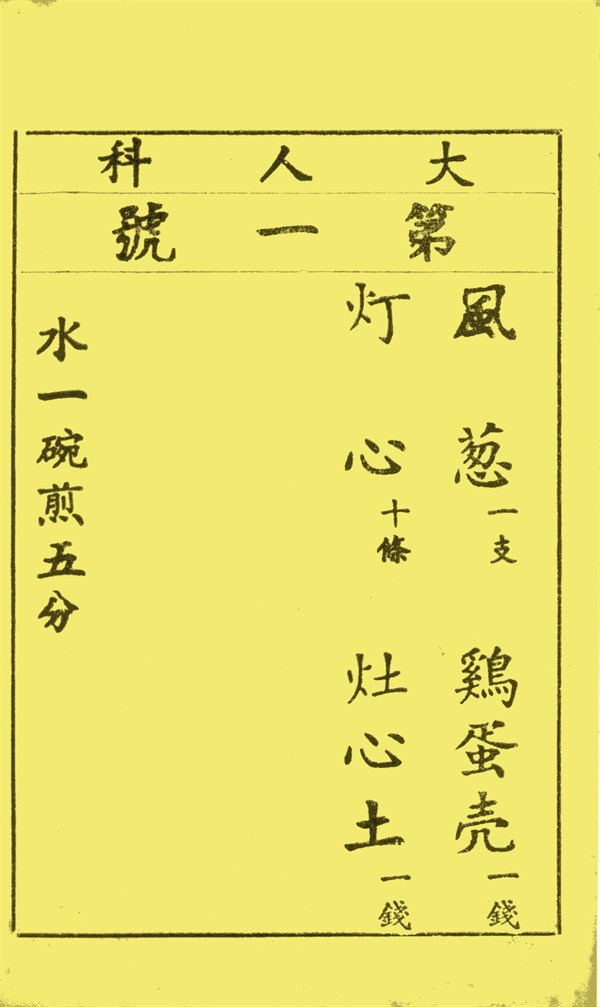 大人科
第一號
風葱一支 鷄蛋壳一錢
灯心十條 灶心土一錢
水一碗煎五分